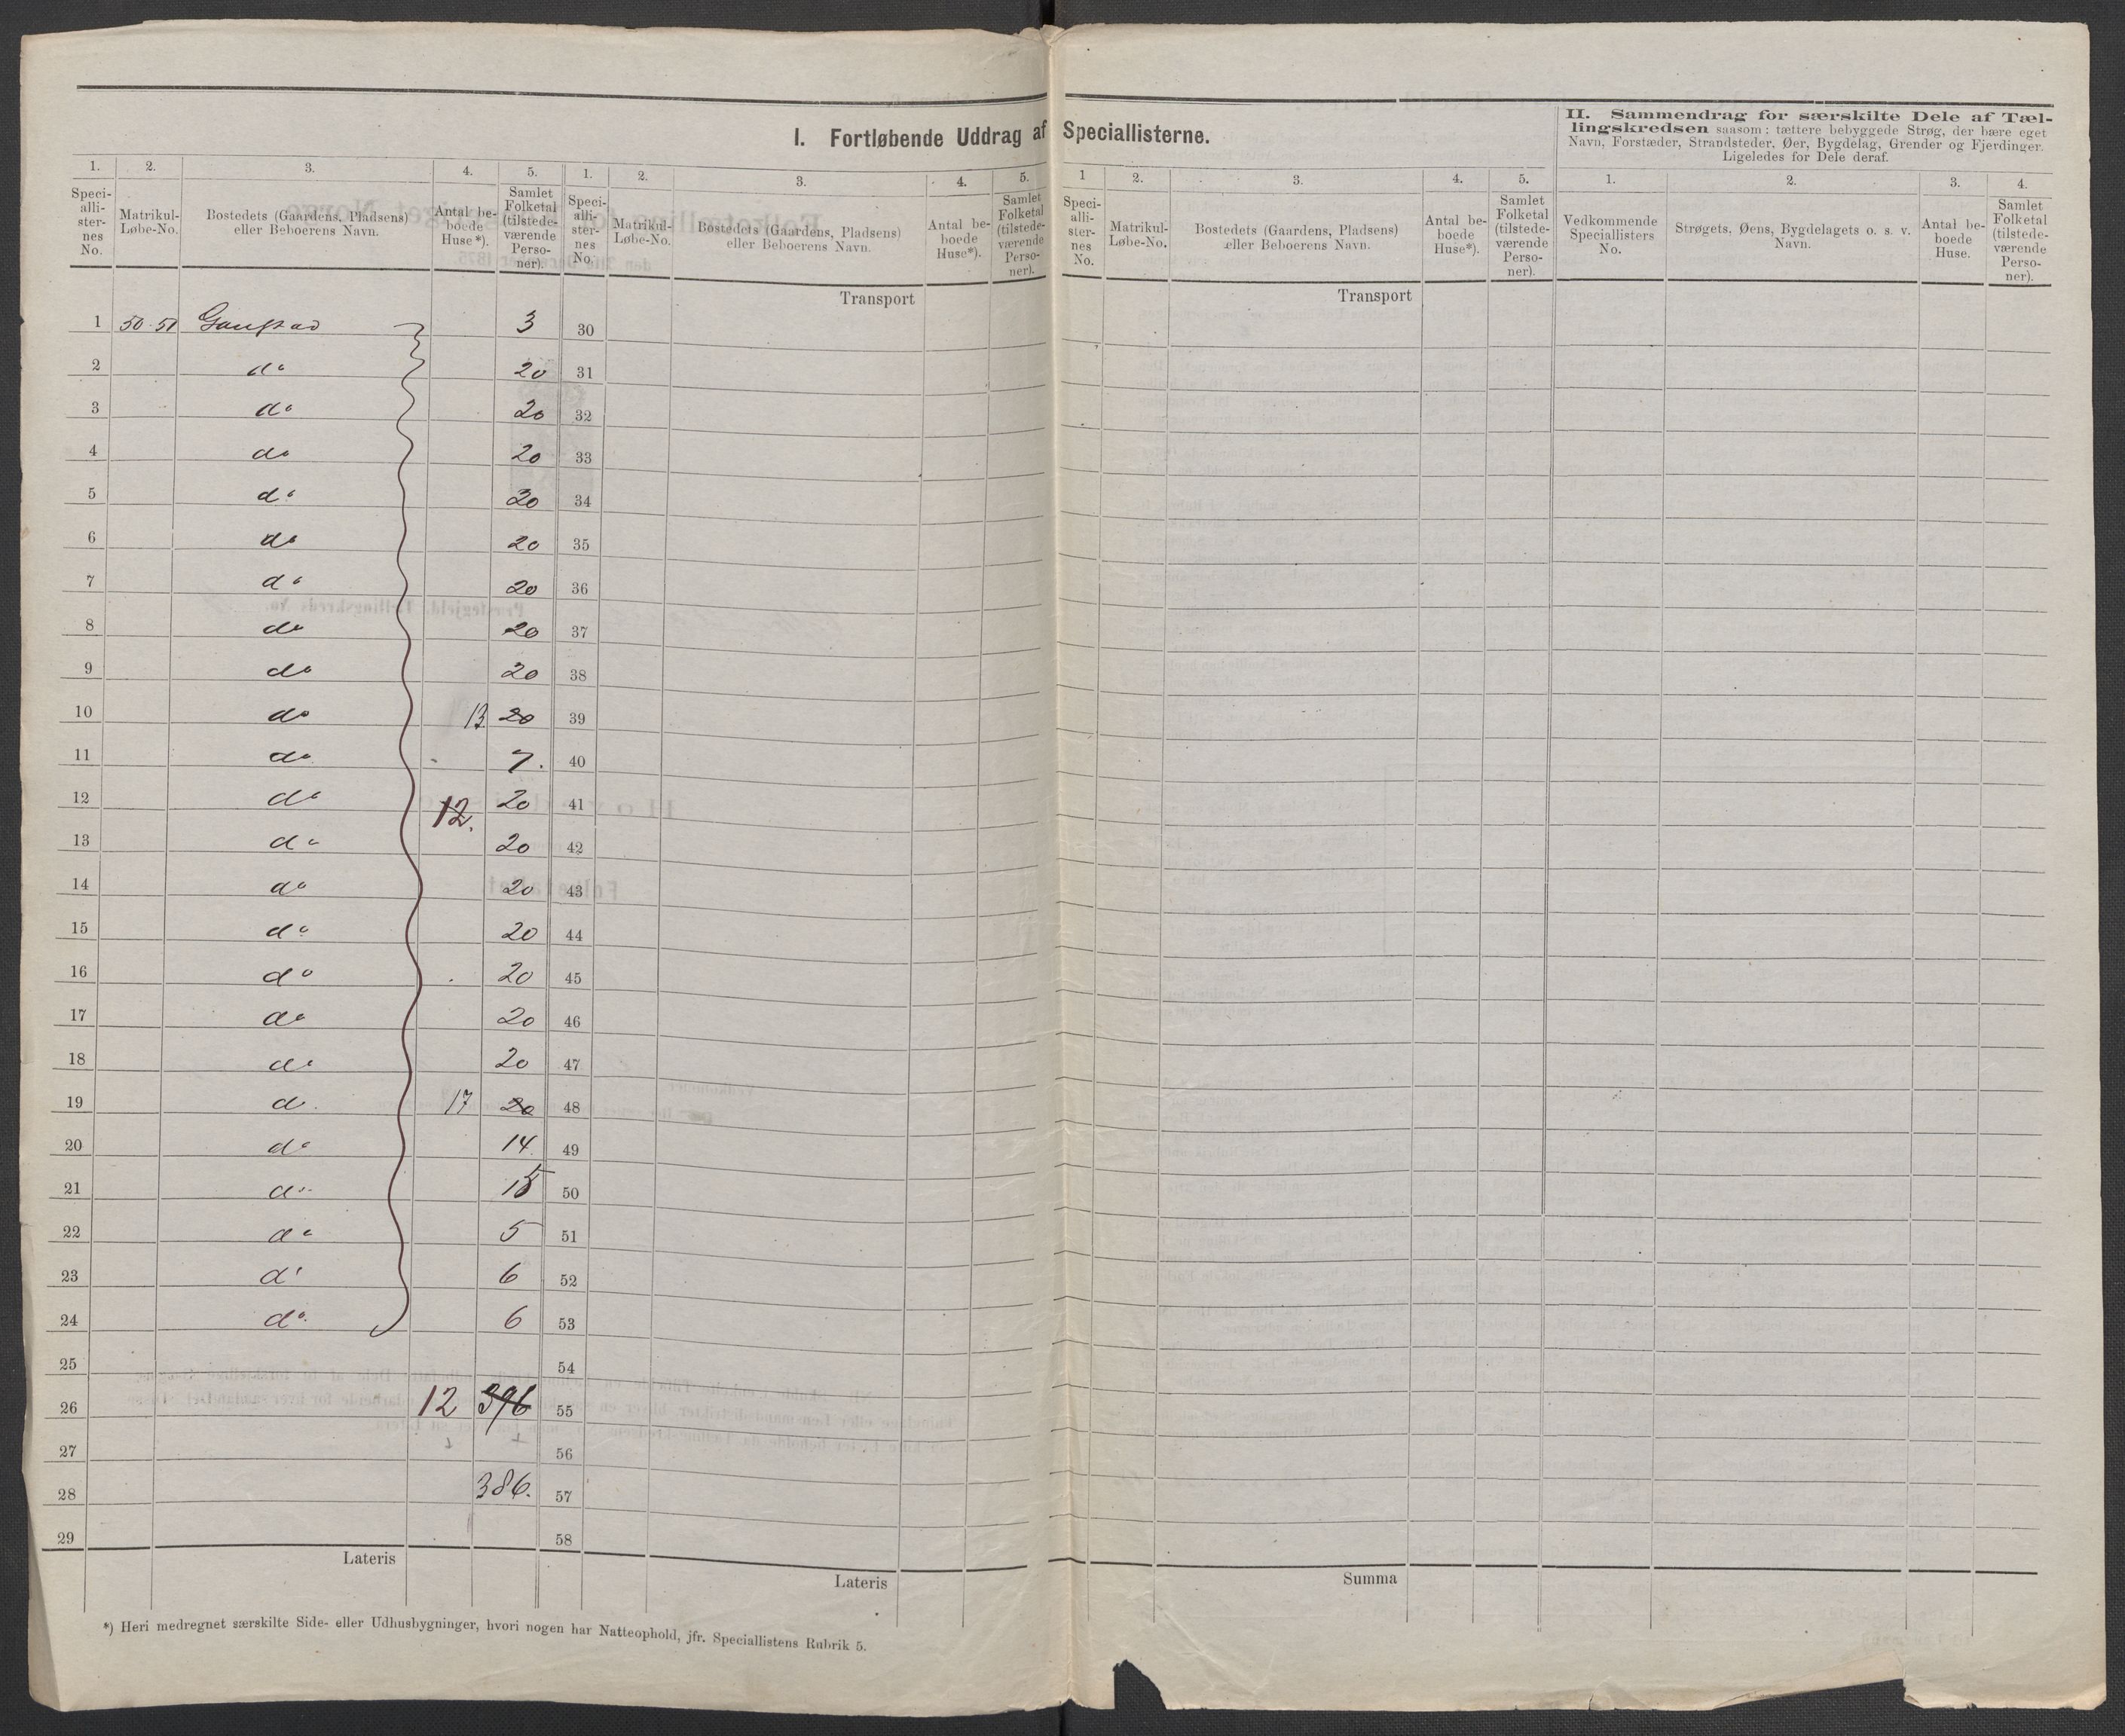 I. Fortløbende Uddrag af Speciallisterne.
II. Sammendrag for særskilte Dele af Tæl-
lingskredsen saasom: tættere bebyggede Strøg, der bære eget
Navn, Forstæder, Strandsteder, Øer, Bygdelag, Grender og Fjerdinger.
Ligeledes for Dele deraf.
1. 2. 3. 4. 5. 1. 2. 3. 4. 5. 1 2. 3. 4. 5. 1. 2. 3. 4.
Speci-
alli-
ster-
nes
No.
Matrikul-
Løbe-No.
Bostedets (Gaardens, Pladsens)
eller Beboerens Navn.
Antal be-
boede
Huse*).
Samlet
Folketal
(tilstede-
værende
Perso-
ner).
Speci-
alli-
ster-
nes
No.
Matrikul-
Løbe-No.
Bostedets (Gaardens, Pladsens)
eller Beboerens Navn.
Antal be-
boede
Huse*).
Samlet
Folketal
(tilstede-
værende
Perso-
ner).
Speci-
alli-
ster-
nes
No.
Matrikul-
Løbe-No.
Bostedets (Gaardens, Pladsens)
eller Beboerens Navn.
Antal be-
boede
Huse*).
Samlet
Folketal
(tilstede-
værende
Perso-
ner).
Vedkommende
Speciallisters
No.
Strøgets, Øens, Bygdelagets o. s. v.
Navn.
Antal be-
boede
Huse.
Samlet
Folketal
(tilstede-
værende
Perso-
ner).
Transport Transport
1 50-51 Gaustad 3 30
2 do 20 31
3 do 20 32
4 do 20 33
5 do 20 34
6 do 20 35
7 do 20 36
8 do 20 37
9 do 20 38
10 do 13 20 39
11 do 7. 40
12 do 12. 20 41
13 do 20 42
14 do 20 43
15 do 20 44
16 do 20 45
17 do 20 46
18 do 20 47
19 d. 17 20 48
20 do 14 49
21 do 15 50
22 do 5 51
23 do 6 52
24 do. 6 53
25 54
26 12 396 55
27 56
28 386. 57
29 58
Lateris Lateris Summa
*) Heri medregnet særskilte Side- eller Udhusbygninger, hvori nogen har Natteophold, jfr. Speciallistens Rubrik 5.